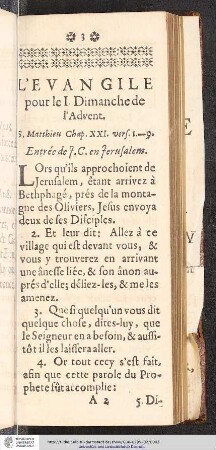 3
L'EVANGILE
pour le I. Dimanche de
l'Advent.
S. Matthieu Chap. XXI. vers. 1.—9.
Entrée de J. C. en Jerusalem.
LOrs qu'ils approchoient de
Jerusalem, étant arrivez à
Bethphagé, prés de la monta-
gne des Oliviers, Jesus envoya
deux de ses Disciples.
2. Et leur dit: Allez à ce
village qui est devant vous, &
vous y trouverez en arrivant
une ânesse liée, & son ânon au-
prés d'elle; déliez-les, & me les
amenez.
3. Que si quelqu'un vous dit
quelque chose, dites-luy, que
le Seigneur en a besoin, & aussi-
tôt il les laissera aller.
4. Or tout cecy s'est fait,
afin que cette parole du Pro-
phete fût accomplie:
A 2 5. Di-